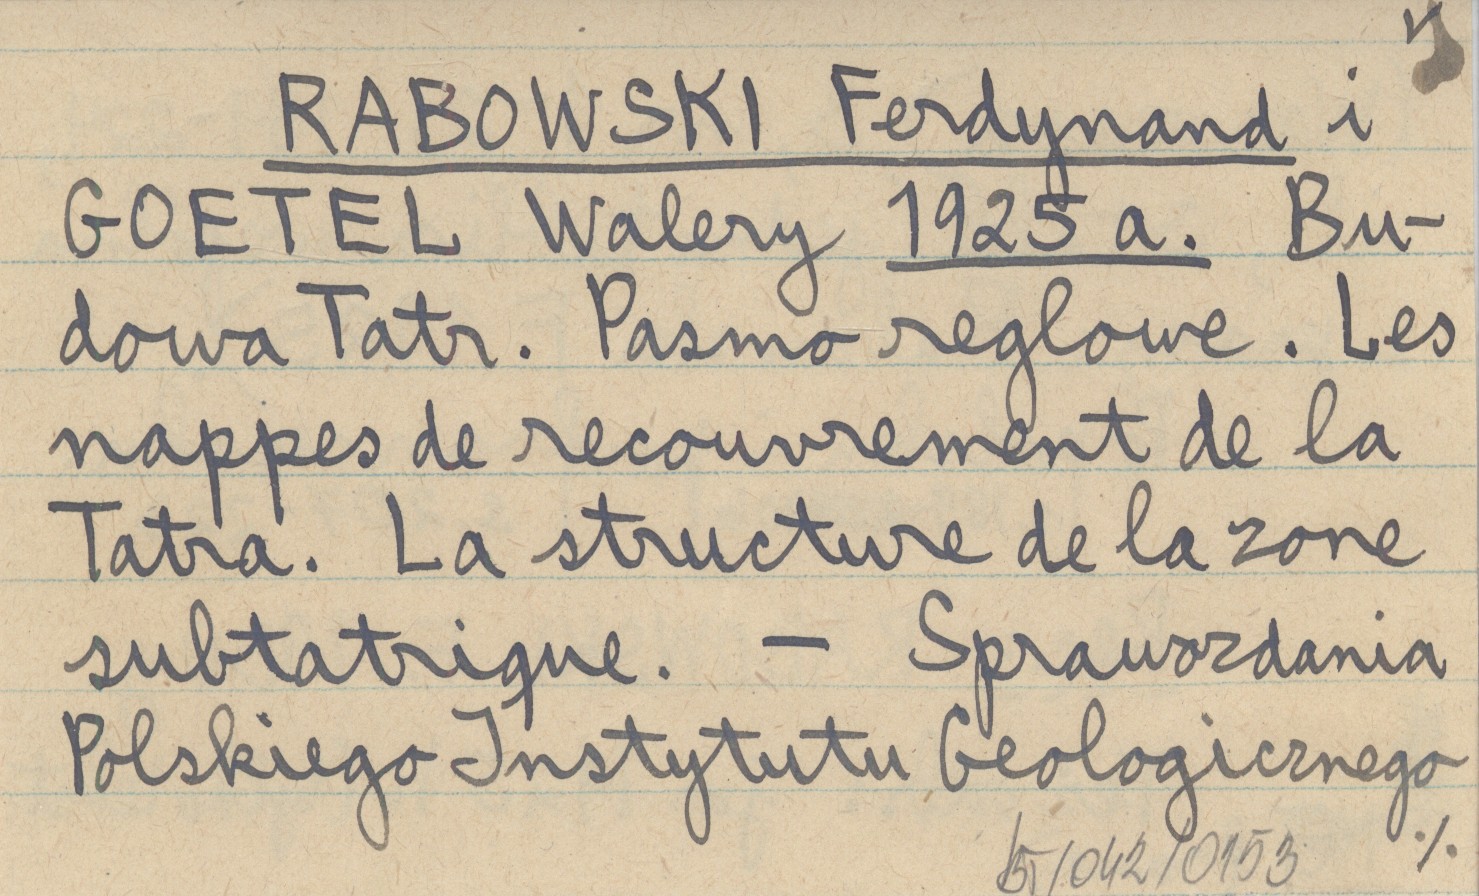 RABOWSKI Ferdynand i
GOETEL Walery 1925 a. Bu-
dowa Tatr. Pasmo reglowe. Les
nappes de recouvrement de la
Tatra. La structure de la zone
subtatrique. – Sprawozdania
Polskiego Instytutu Geologicznego
./.
/042/0153